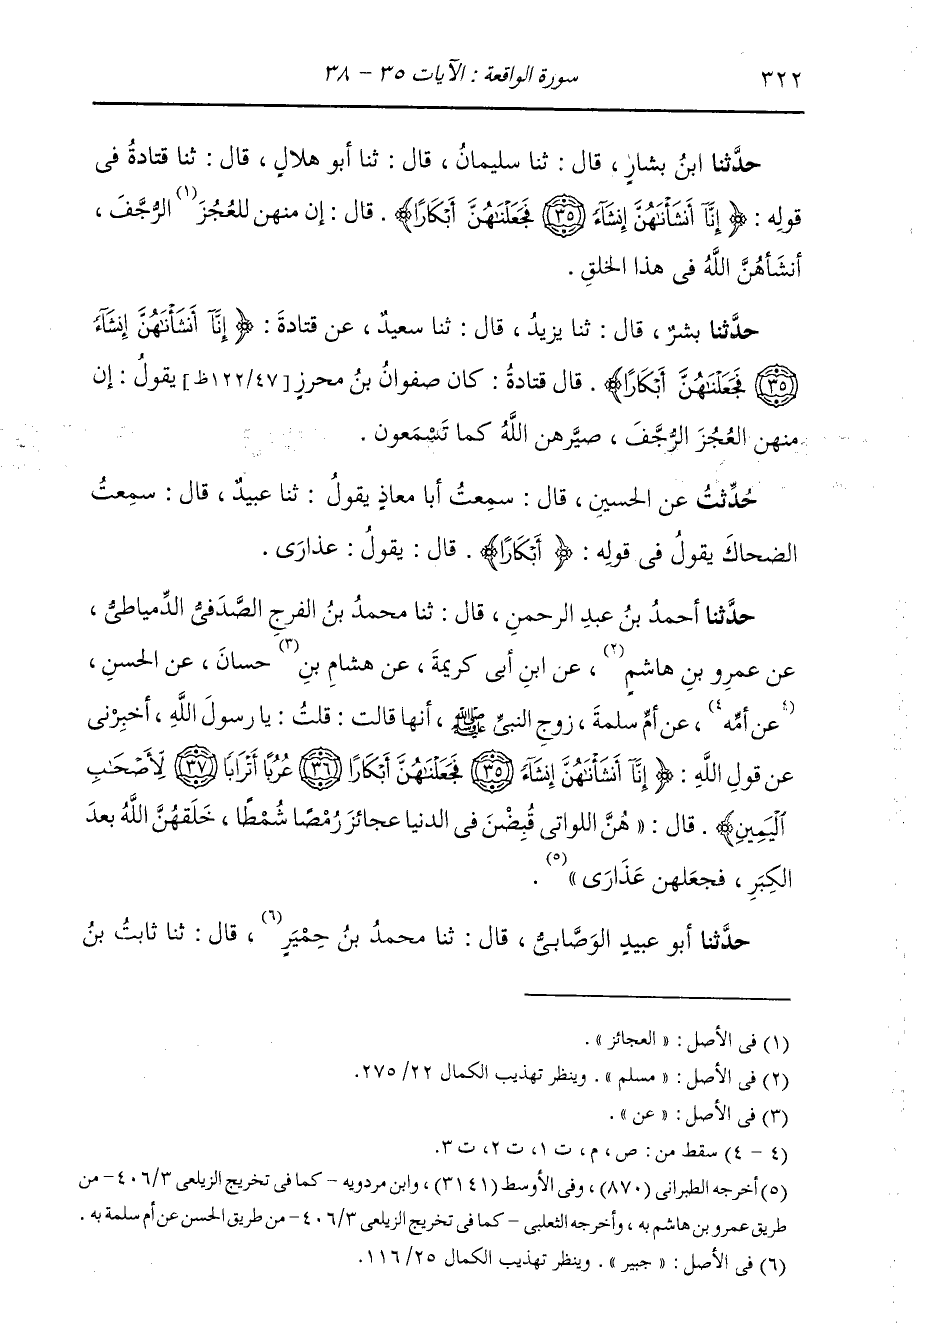 ٣٢٢ سورة الواقعة : الآيات ٣٥ - ٣٨
حدَّثنا ابنُ بشارٍ ، قال : ثنا سليمانُ ، قال : ثنا أبو هلالٍ ، قال : ثنا قتادةُ فى
قولِه : ﴿ إِنَّآ أَنشَأْنَٰهُنَّ إِنشَآءً ﴿٣٥﴾ فَجَعَلْنَٰهُنَّ أَبْكَارًا﴾ . قال : إن منهن للعُجُزَ(١) الرُّجَّفَ ،
أنشَأهُنَّ اللَّهُ فى هذا الخلقِ .
حدَّثنا بشرٌ ، قال : ثنا يزيدُ ، قال : ثنا سعيدٌ ، عن قتادةَ : ﴿ إِنَّآ أَنشَأْنَٰهُنَّ إِنشَآءً
﴿٣٥﴾ فَجَعَلْنَٰهُنَّ أَبْكَارًا﴾ . قال قتادةُ : كان صفوانُ بنُ محرزٍ [١٢٢/٤٧ظ] يقولُ : إن
منهن العُجُزَ الرُّجَّفَ ، صيَّرهن اللَّهُ كما تَسْمَعون .
حُدِّثتُ عن الحسينِ ، قال : سمِعتُ أبا معاذٍ يقولُ : ثنا عبيدٌ ، قال : سمِعتُ
الضحاكَ يقولُ فى قولِه : ﴿ أَبْكَارًا﴾ . قال : يقولُ : عذارَى .
حدَّثنا أحمدُ بنُ عبدِ الرحمنِ ، قال : ثنا محمدُ بنُ الفرجِ الصَّدَفىُّ الدِّمياطىُّ ،
عن عمرِو بنِ هاشمٍ(٢) ، عن ابنِ أبى كريمةَ ، عن هشامِ بنِ(٣) حسانَ ، عن الحسنِ ،
(٤عن أمِّه٤) ، عن أمِّ سلمةَ ، زوجِ النبىِّ ﷺ ، أنها قالت : قلتُ : يا رسولَ اللَّهِ ، أخبِرْنى
عن قولِ اللَّهِ : ﴿ إِنَّآ أَنشَأْنَٰهُنَّ إِنشَآءً ﴿٣٥﴾ فَجَعَلْنَٰهُنَّ أَبْكَارًا ﴿٣٦﴾ عُرُبًا أَتْرَابًا ﴿٣٧﴾ لِّأَصْحَٰبِ
ٱلْيَمِينِ﴾ . قال : « هُنَّ اللواتى قُبِضْنَ فى الدنيا عجائزَ رُمْصًا شُمْطًا ، خَلَقهُنَّ اللَّهُ بعدَ
الكِبَرِ ، فجعَلهن عَذَارَى »(٥) .
حدَّثنا أبو عبيدٍ الوَصَّابىُّ ، قال : ثنا محمدُ بنُ حِمْيَرٍ(٦) ، قال : ثنا ثابتُ بنُ
(١) فى الأصل : « العجائز » .
(٢) فى الأصل : « مسلم » . وينظر تهذيب الكمال ٢٢/ ٢٧٥.
(٣) فى الأصل : « عن » .
(٤ - ٤) سقط من : ص ، م ، ت ١، ت ٢، ت ٣.
(٥) أخرجه الطبرانى (٨٧٠) ، وفى الأوسط (٣١٤١) ، وابن مردويه - كما فى تخريج الزيلعى ٤٠٦/٣- من
طريق عمرو بن هاشم به ، وأخرجه الثعلبى - كما فى تخريج الزيلعى ٤٠٦/٣- من طريق الحسن عن أم سلمة به .
(٦) فى الأصل : « جبير » . وينظر تهذيب الكمال ٢٥/ ١١٦.